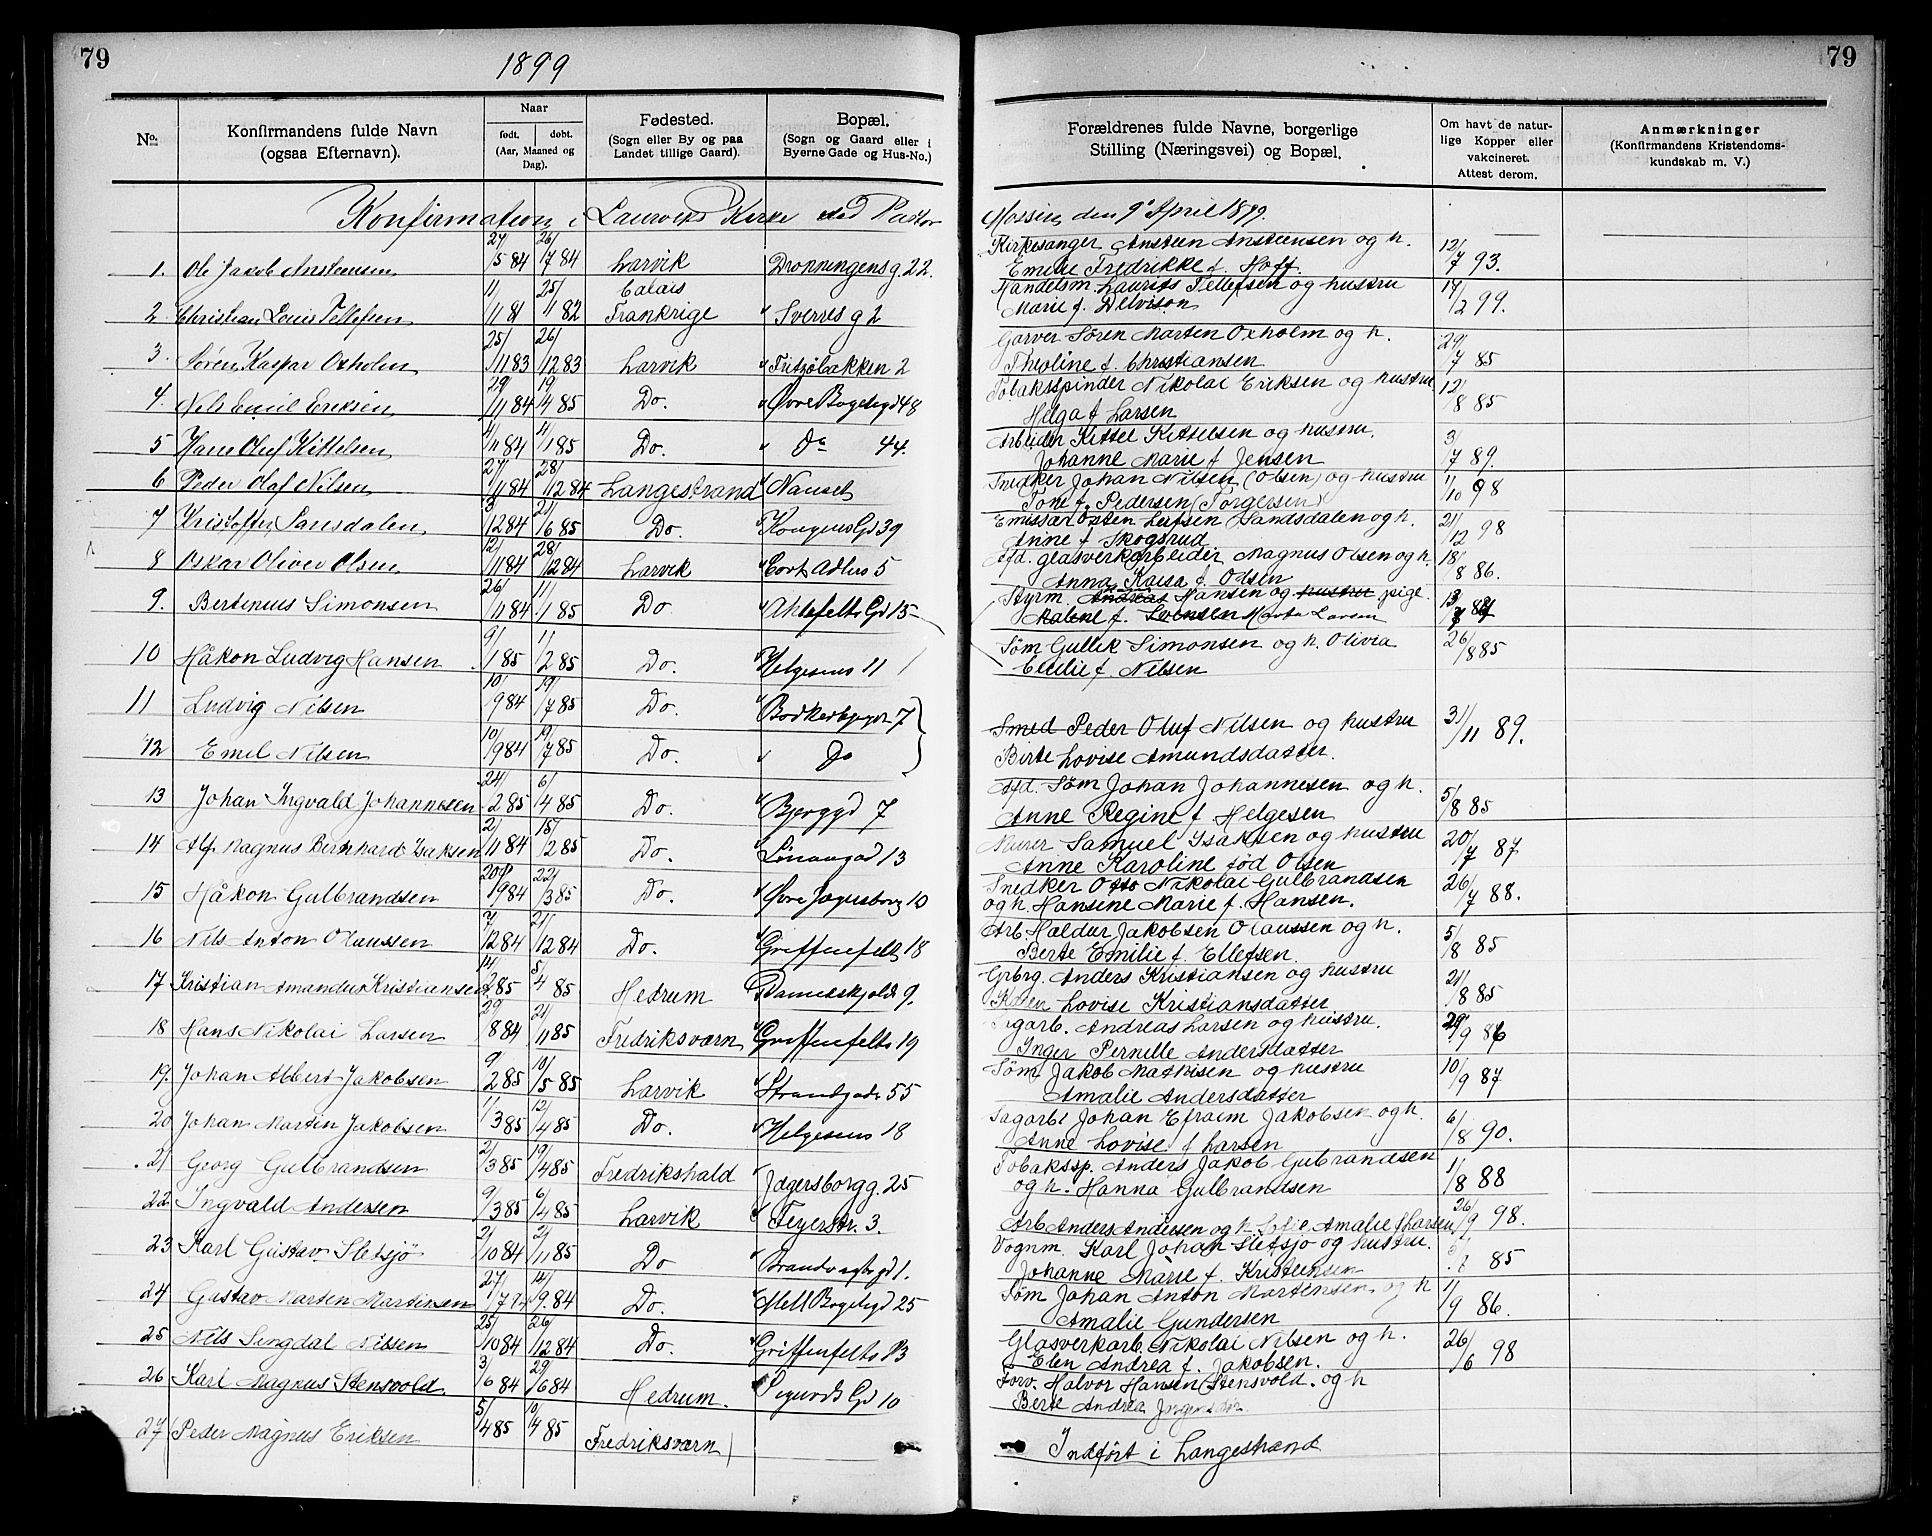 79
1899
79
No.
Konfirmandens fulde Navn
(ogsaa Efternavn).
Naar
født. dobt.
(Aar, Maaned og
Dag).
Fødested.
(Sogn eller By og paa
Landet tillige Gaard).
Bopæl.
(Sogn og Gaard eller i
Byerne Gade og Hus-No.)
Forældrenes fulde Navne, borgerlige
Stilling (Næringsvei) og Bopæl.
Om havt de natur-
lige Kopper eller
vakcineret.
Attest derom.
Anmærkninger
(Konfirmandens Kristendoms-
kundskab m. V.)
Konfirmation i Laurviks Kirke ved Pastor Mossin, den 9de April 1899.
1. Ole Jakob Ansteensen 27/5 84 26/7 84 Larvik Dronningensg. 22. Kirkesanger Ansteen Ansteensen og h. 12/7 93.
Emilie Fredrikke f. Hoff.
2 Christian Louis Tellefsen 11/11 81 25/11 82 Calais Frankrige Sverres g 2 Handelsm. Laurits Tellefsen og hustru 14/2 99.
Marie f. Delvison
3. Sören Kaspar Oxholm 25/11 83 26/12 83 Larvik Fritzöbakken 2 Garver Sören Marten Oxholm og h. 29/7 85
Theoline f. Christiansen
4. Nils Emil Eriksen 29/11 84 19/4 85 Do. Øvre Bögeligd 48 Tobakspinder Nikolai Eriksen og hustru 12/8 85
Helga f. Larsen
5 Hans Oluf Kittelsen 4/11 84 4/1 85 Do. Do 44. Arbeider Kittel Kittelsen og hustru. 3/7 89.
Johanne Marie f. Jensen
6 Peder Olaf Nilsen 27/11 84 28/12 84 Langestrand Nanset Snedker Johan Nilsen (Olsen) og hustru 11/10 98
Tone f. Pedersen (Torgersen)
7 Kristoffer Sansdalen 3/12 84 21/6 85 Do. Kongens Gd 39 Emissær Osten Leifsen Sandsdalen og h. 21/12 98
Anne f. Skogsrud
8 Oskar Oliver Olsen 12/11 84 28/12 84 Larvik Cort Adlers 5 Afd. glasverkarbeider Magnus Olsen og h. 18/8 86.
Anna Kaisa f. Olsen
9. Bertenius Simonsen 26/11 84 11/1 85 Do Ahlefelts Gd 15 Styrm. Andreas Hansen og hustru pige. 13/
Malene f. Svensen Marta Larsen
10 Håkon Ludvig Hansen 9/1 85 1/2 85 Do. Helgesens 11 Søm Gullik Simonsen og h. Olivia 26/8 85
Emilie f. Nilsen
11 Ludvig Nilsen 10/9 84 19/7 85 Do. Bödkerbgd 7 Smed Peder Oluf Nilsen og hustru 31/11 89.
12 Emil Nilsen 10/9 84 19/7 85 Do. Do Birte Lovise Amundsdatter.
13 Johan Ingvald Johannesen 24/2 85 6/4 85 Do. Bjerggd 7 Afd. Søm Johan Johannesen og h. 5/8 85
Anne Regine f Helgesen
14 Alf Magnus Bernhard Isaksen 2/11 84 15/2 85 Do. 13 Murer Samuel Isaksen og hustru 20/7 87
Anne Karoline fød Olsen
15 Håkon Gulbrandsen 20/9 84 22/3 85 Do. Øvre Jægersborg 10 Snedker Otto Nikolai Gulbrandsen 26/7 88.
og h. Hansine Marie f. Hansen.
16 Nils Anton Olaussen 7/12 84 21/12 84 Do. Griffenfelts 18 Arb Haldur Jakobsen Olaussen og h. 5/8 85
Berte Emilie f. Ellefsen.
17 Kristian Amandus Kristiansen 14/2 85 5/4 85 Hedrum Danneskjolds 9. Grbrg. Anders Kristiansen og hustru 21/8 85
Lovise Kristiansdatter
18 Hans Nikolai Larsen 29/8 84 21/11 85 Fredriksværn Griffenfelts 19 Sagarb. Andreas Larsen og hustru. 29/9 86
Inger Pernille Andersdatter
19. Johan Albert Jakobsen 9/2 85 10/5 85 Larvik Strandgade 55 Søm Jakob Mathisen og hustru 10/9 87
Amalie Andersdatter
20 Johan Martin Jakobsen 1/3 85 12/4 85 Do. Helgesens 18 Sagarb. Johan Efraim Jakobsen og h. 6/8 90.
Anne Lovise f Larsen
21 Georg Gulbrandsen 2/3 85 19/4 85 Fredrikshald Jægersborgg. 25 Tobakssp. Anders Jakob Gulbrandsen 1/8 88
og h. Hanna Gulbrandsen
22 Ingvald Andersen 9/3 85 6/4 85 Larvik Feyerstr. 3. Arb Anders Andersen og h. Amalie f Larsen 26/9 98.
23 Karl Gustav Sletsjö 2/10 84 2/11 85 Do Brandvagtsgd 1. Vognm. Karl Johan Sletsjø og hustru. 85
Johanne Marie f. Kristensen
24 Gustav Marten Martinsen 27/7 14/9 84 Do. Mell Bögeligd 25 Søm Johan Anton Martensen og h 11/9 86.
Amalie Gundersen
25 Nils Singdal Nilsen 25/10 84 26/12 84 Do. Griffenfelts 13 Glasverkarb. Nikolai Nilsen og h. 26/6 98
Elen Andrea f. Jakobsen.
26 Karl Magnus Stensvold 3/6 84 29/6 84 Hedrum. Sigurds Gd 10 Forv. Halvor Hansen Stensvold. og h
Berte Andrea
27 Peder Magnus Eriksen 5/4 85 10/4 85 Fredriksværn Indført i Langestrand